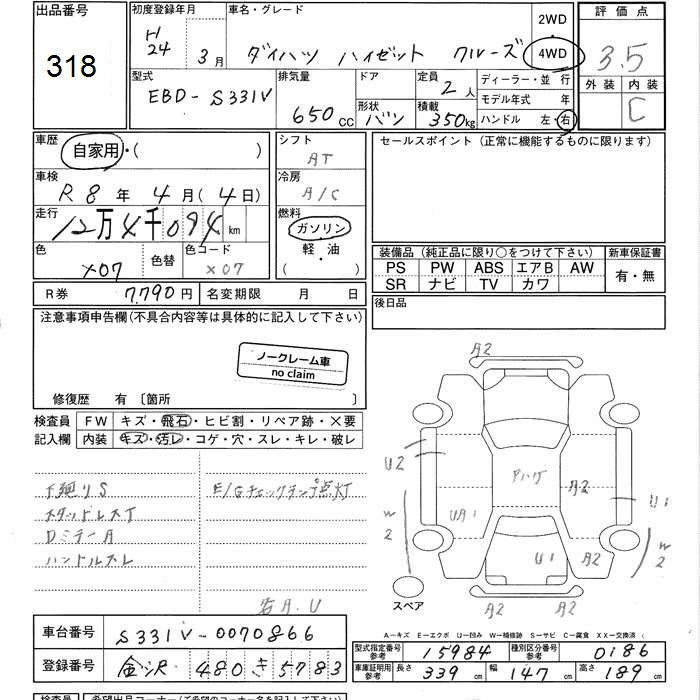 出品番号 初度登録年月 車名・グレード 2WD 評価点
318 H24 年 3月 ダイハツ ハイゼット クルーズ 4WD 3.5
型式 排気量 ドア 定員 ディーラー・並 行 外装 内装
EBD-S331V 650cc 2人 モデル年式 年 C
形状 積載 ハンドル 左・右
バン 350kg
車歴 シフト セールスポイント (正常に機能するものに限ります)
自家用・( ) AT
車検 冷房
R 8年 4月(4日) A/C
走行 燃料
12万4千094km ガソリン
色 色替 色コード 軽・油 装備品 (純正品に限り○をつけて下さい) 新車保証書
X07 X07 ( ) PS PW ABS エアB AW 有・無
SR ナビ TV カワ
R券 7,790円 名変期限 月 日 後日品
注意事項申告欄(不具合内容等は具体的に記入して下さい)
ノークレーム車
no claim
修復歴 有〔箇所 〕
検査員 FW キズ・飛石・ヒビ割・リペア跡・×要
記入欄 内装 キズ・汚レ・コゲ・穴・スレ・キレ・破レ
下廻りS E/Gチェックランプ点灯
スタッドレスT
Dミラー A
ハンドルスレ
右A.U
A2
U2 Pハゲ A2 U1
W2 UA1 U1 A2 W2
スペア A2 A2
A-キズ E-エクボ U-凹み W-補修跡 S-サビ C-腐食 XX-交換済 (
車台番号 S331V-0070866
型式指定番号 参考 15984 種別区分番号 参考 0186
登録番号 金沢 480 き 5783
車庫証明用 参考 長さ 339cm 幅 147cm 高さ 189cm